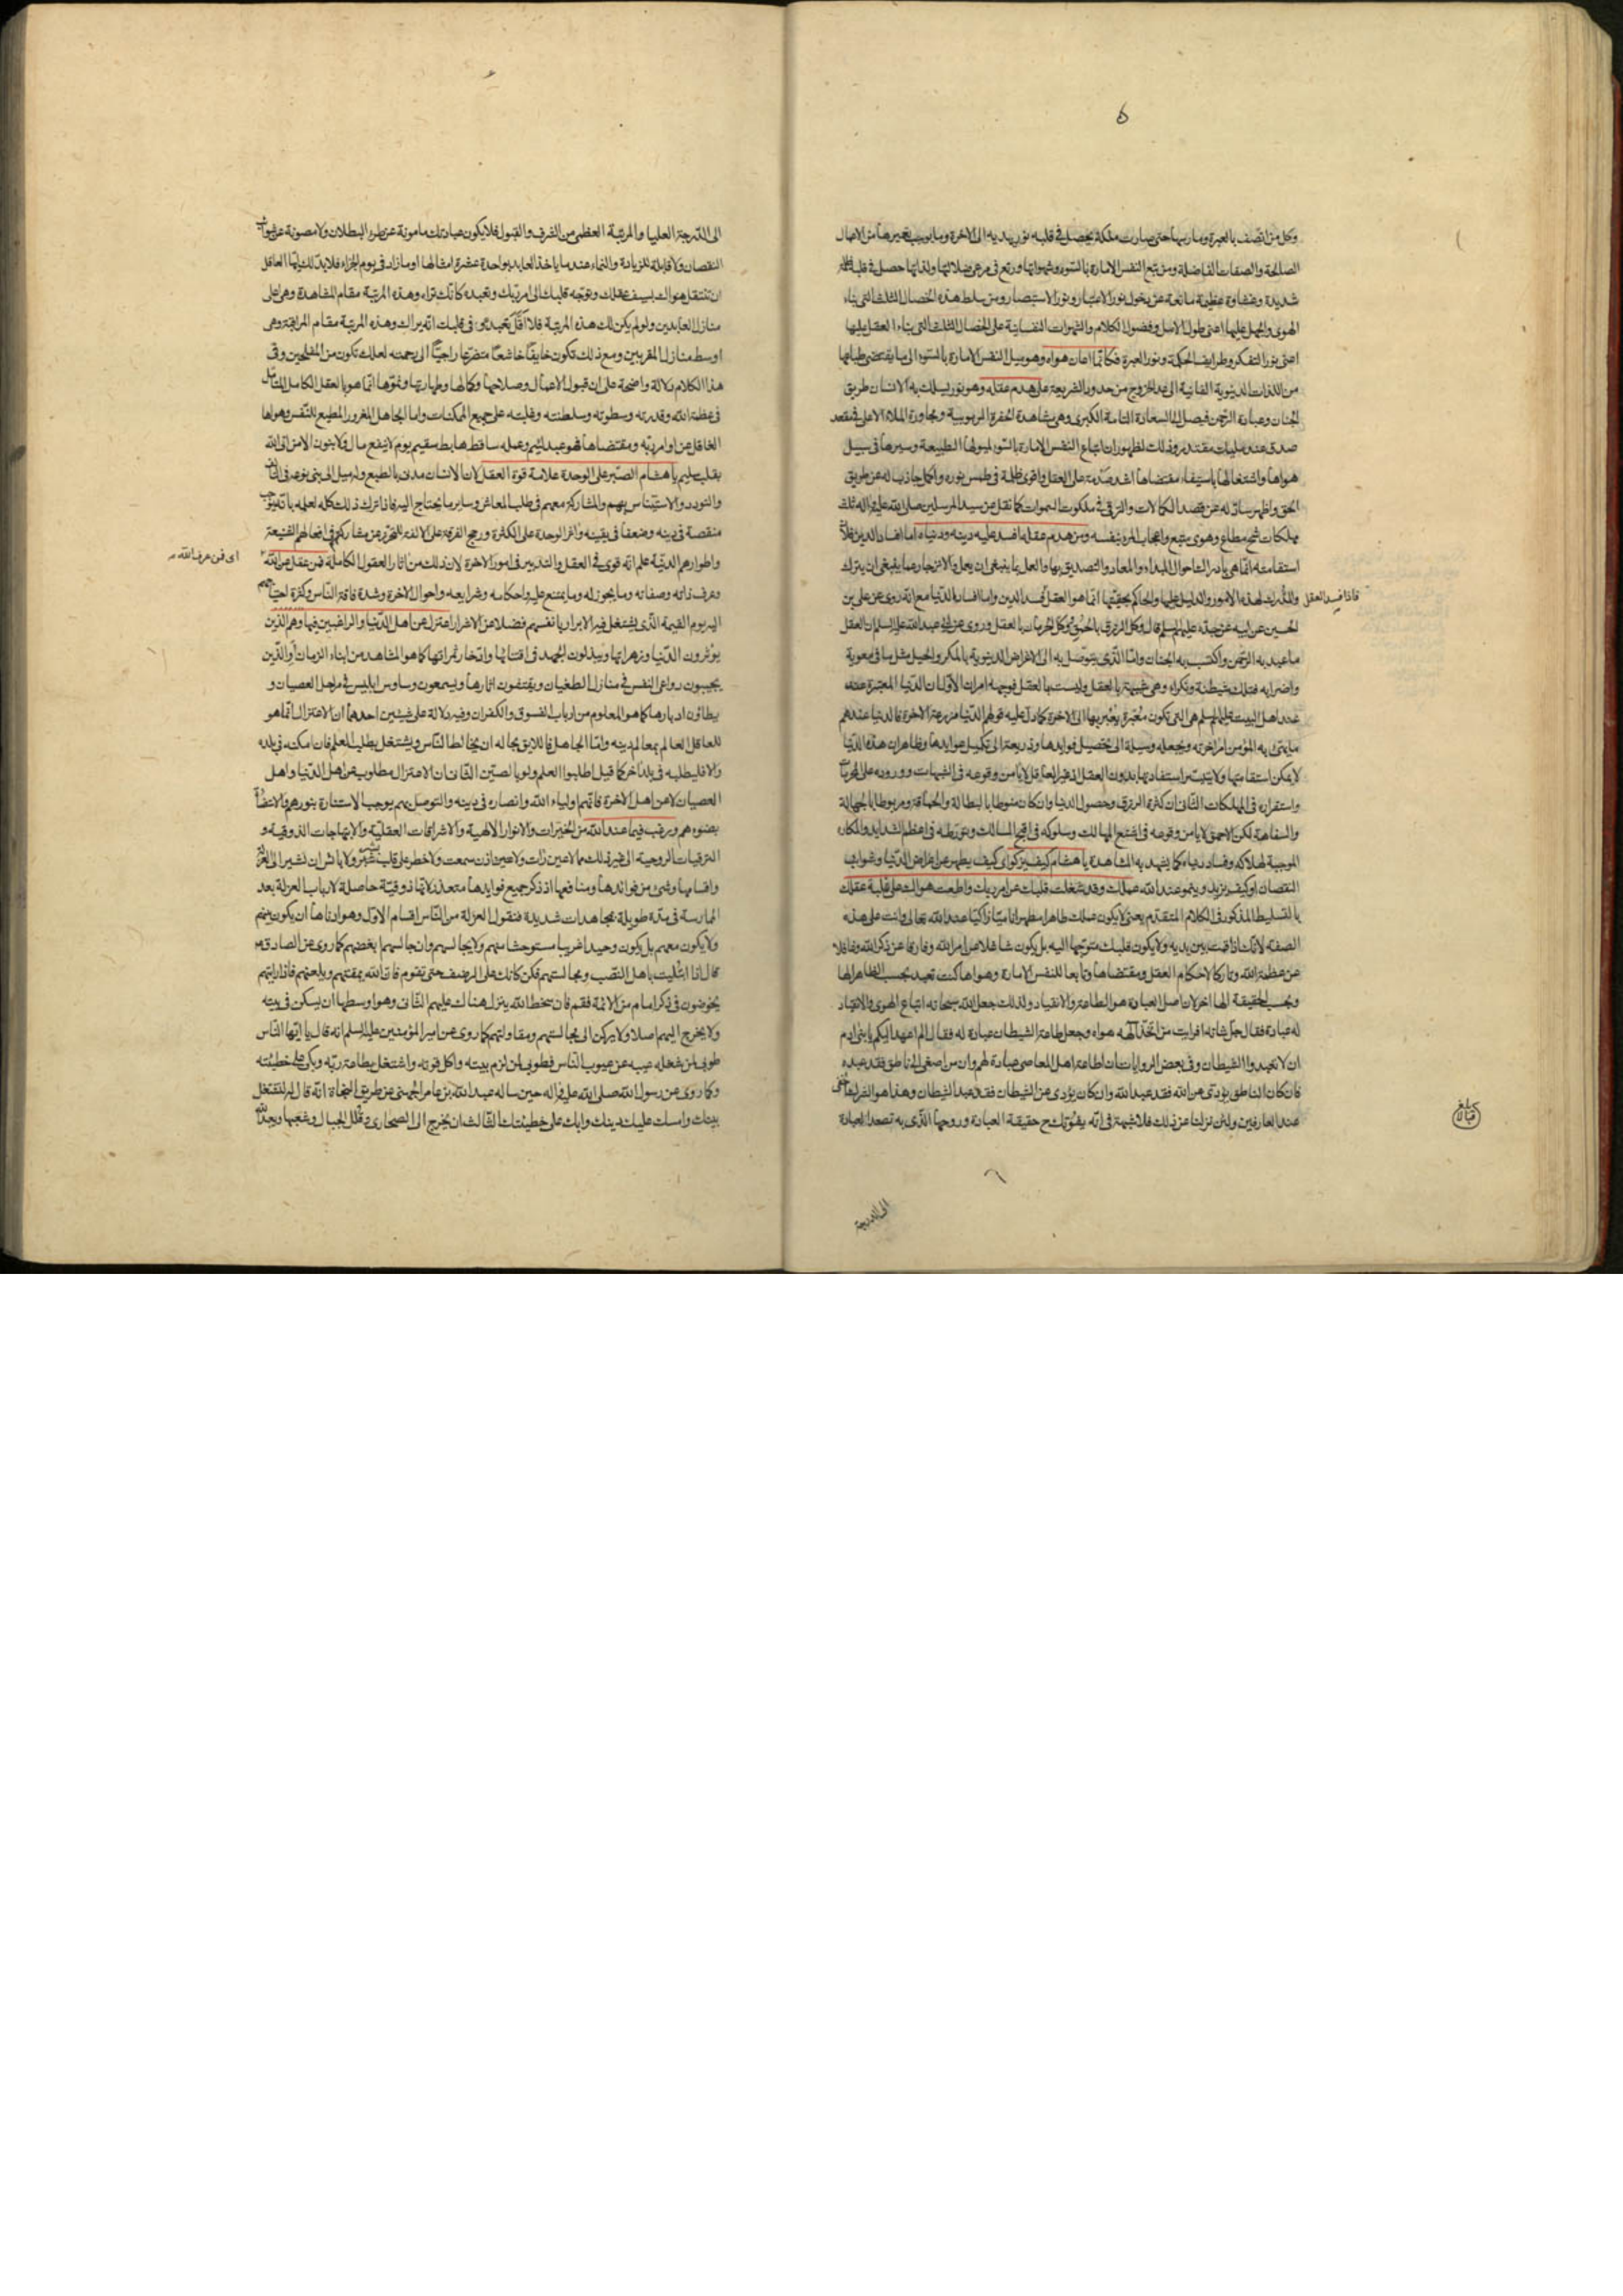 وكل من اتصف بالعبرة ومارسها حتى صارت ملكة يحصل في قلبه نور يهديه الى الاخرة وما يوجب تعميرها من الاعمال
الصالحة والصفات الفاضلة ومن تبع النفس الامارة بالسوء وشهواتها ورتع في مرعى ضلالتها ولذاتها حصل في قلبه ظلمة
شديدة وغشاوة عظيمة مانعة عن دخول نور الاعتبار ونور الاستبصار ومن سلط هذه الخصال الثلث التي بناء
الهوى والجهل عليها اعنى طول الامل وفضول الكلام والشهوات النفسانية على الخصال الثلث التي بناء العقل عليها
اعنى نور التفكر وطرايف الحكمة ونور العبرة فكانما اعان هواه وهو ميل النفس الامارة بالسوء الى ما يقتضى طباعها
من اللذات الدنيوية الفانية الى حد الخروج من حدود الشريعة على هدم عقله وهو نور يسلك به الانسان طريق
الجنان وعبادة الرحمن فيصل الى السعادة التامة الكبرى وهى مشاهدة الحضرة الربوبية ومجاورة الملاء الاعلى في مقعد
صدق عند مليك مقتدر وذلك لظهور ان اتباع النفس الامارة بالسوء لميولها الطبيعة وسيرها في سبيل
هواها واشتغالها باستيفاء مقتضاها اشد صدمة على العقل واقوى ظلمة في طمس نوره واكمل جاذب له عن طريق
الحق واظهر سائق له عن قصد الكمالات والترقى في ملكوت السموات كما نقل عن سيد المرسلين صلى الله عليه واله ثلث
مهلكات شح مطاع وهوى متبع واعجاب المرء بنفسه ومن هدم عقله افسد عليه دينه ودنياه اما افساد الدين فلان
استقامته انما هي بادراك احوال المبداء والمعاد والتصديق بها والعمل بما ينبغى ان يعمل والانزجار عما ينبغى ان يترك
فاذا فسد العقل
والمدرك لهذه الامور والدليل عليها والحاكم بحقيتها انما هو العقل فسد الدين واما افساد الدنيا مع انه روى عن على بن
الحسين عن ابيه عن جده عليهم السلم قال وكل الرزق بالحمق ووكل الحرمان بالعقل وروى عن ابى عبد الله عليه السلم ان العقل
ما عبد به الرحمن واكتسب به الجنان واما الذى يتوصل به الى الاغراض الدنيوية بالمكر والحيل مثل ما في معوية
واضرابه فتلك شيطنة ونكراء وهى شبيهة بالعقل وليست بالعقل فوجهه امران الاول ان الدنيا المعتبرة عنده
عند اهل البيت عليهم السلم هى التي تكون معتبرة يعتبر بها الى الاخرة كما دل عليه قولهم الدنيا مزرعة الاخرة فالدنيا عندهم
ما يتمتع به المؤمن امر اخرته ويجعله وسيلة الى تحصيل فوايدها وذريعة الى تكميل عوايدها وظاهر ان هذه الدنيا
لا يمكن استقامتها ولا يتيسر استفادتها بدون العقل اذ غير العاقل لا يامن وقوعه في الشبهات ووروده على المحرمات
واستقراره في المهلكات الثانى ان كثرة الرزق وحصول الدنيا وان كان منوطا بالبطالة والحماقة ومربوطا بالجهالة
والسفاهة لكن الاحمق لا يامن وقوعه في اشنع المهالك وسلوكه في اقبح المسالك وتورطه في اعظم الشدايد والمكاره
الموجبة لهلاكه وفساد دنياه كما يشهد به المشاهدة يا هشام كيف يزكو اى كيف يطهر عن اغراض الدنيا وشوايب
النقصان او كيف يزيد وينمو عند الله عملك وقد شغلت قلبك عن امر ربك واطعت هواك على غلبة عقلك
بالتسليط المذكور في الكلام المتقدم يعنى لا يكون عملك طاهرا مطهرا ناميا زاكيا عند الله تعالى وانت على هذه
الصفة لانك اذا قمت بين يديه ولا يكون قلبك متوجها اليه بل يكون شاغلا عن امر الله وفارغا عن ذكر الله وغافلا
عن عظمة الله وتاركا لاحكام العقل ومقتضاها وتابعا للنفس الامارة وهواها كنت تعبد بحسب الظاهر الها
وبحسب الحقيقة الها اخر لان اصل العبادة هو الطاعة والانقياد ولذلك جعل الله سبحانه اتباع الهوى والانقياد
له عبادة فقال جل شانه افرايت من اتخذ الهه هواه وجعل طاعة الشيطان عبادة له فقال الم اعهد اليكم يا بنى ادم
ان لا تعبدوا الشيطان وفي بعض الروايات ان اطاعة اهل المعاصى عبادة لهم وان من اصغى الى ناطق فقد عبده
فان كان الناطق يؤدى عن الله فقد عبد الله وان كان يؤدى عن الشيطان فقد عبد الشيطان وهذا هو الشرك الخفى
عند العارفين ولئن نزلنا عن ذلك فلا شبهة في انه يفوتك ح حقيقة العبادة وروحها الذى به تصعد العبادة
الى الدرجة
الى الدرجة العليا والمرتبة العظمى من الشرف والقبول فلا يكون عبادتك مامونة عن طرد البطلان ولا مصونة عن شوائب
النقصان ولا قابلة للزيادة والنماء عند ما ياخذ العابد بواحدة عشرة امثالها او ما زاد في يوم الجزاء فلا بد لك ايها العاقل
ان تقتل هواك بسيف عقلك وتوجه قلبك الى امر ربك وتعبده كانك تراه وهذه المرتبة مقام المشاهدة وهى اعلى
منازل العابدين ولو لم يكن لك هذه المرتبة فلا اقل تعبده وفي قلبك انه يراك وهذه المرتبة مقام المراقبة وهى
اوسط منازل المقربين ومع ذلك تكون خايفا خاشعا متضرعا راجيا الى رحمته لعلك تكون من المفلحين وفى
هذا الكلام دلالة واضحة على ان قبول الاعمال وصلاحها وكمالها وطهارتها ونموها انما هو بالعقل الكامل المتامل
في عظمة الله وقدرته وسطوته وسلطنته وغلبته على جميع الممكنات واما الجاهل المغرور المطيع للنفس وهواها
الغافل عن اوامر ربه ومقتضاها فهو عبد لئيم وعمله ساقط هابط سقيم يوم لا ينفع مال ولا بنون الا من اتى الله
بقلب سليم يا هشام الصبر على الوحدة علامة قوة العقل لان الانسان مدنى بالطبع وله ميل الى بنى نوعه في التانس
والتودد والاستيناس بهم والمشاركة معهم في طلب المعاش وساير ما يحتاج اليه فاذا ترك ذلك كله لعلمه بانه يوجب
منقصة في دينه وضعفا في يقينه واثر الوحدة على الكثرة ورجح الفرقة على الالفة للتحرز عن مشاركتهم في افعالهم الشنيعة
واطوارهم الدنية علم انه قوى في العقل والتدبير في امور الاخرة لان ذلك من اثار العقول الكاملة فمن عقل عن الله
اى فمن عرف الله
وعرف ذاته وصفاته وما يجوز له وما يمتنع عليه واحكامه وشرايعه واحوال الاخرة وشدة فاقة الناس وكثرة احتياجهم
اليه يوم القيمة الذى يشتغل فيه الابرار بانفسهم فضلا عن الاشرار اعتزل عن اهل الدنيا والراغبين فيها وهم الذين
يؤثرون الدنيا وزهراتها ويبذلون الجهد في اقتنائها وادخار ثمراتها كما هو المشاهد من ابناء الزمان او الذين
يجيبون دواعى النفس في منازل الطغيان ويقتفون اثارها ويسمعون وساوس ابليس في مراحل العصيان و
يطاؤن ادبارها كما هو المعلوم من ارباب الفسوق والكفران وفيه دلالة على شيئين احدهما ان الاعتزال انما هو
للعاقل العالم بمعالم دينه واما الجاهل فاللايق بحاله ان يخالط الناس ويشتغل بطلب العلم فان امكنه في بلده
والا فليطلبه في بلد اخر كما قيل اطلبوا العلم ولو بالصين الثانى ان الاعتزال مطلوب عن اهل الدنيا واهل
العصيان لا عن اهل الاخرة فانهم اولياء الله وانصاره في دينه والتوصل بهم يوجب الاستنارة بنورهم والاستضاءة
بضوءهم ورغب فيما عند الله من الخيرات والانوار الالهية والاشراقات العقلية والابتهاجات الذوقية و
الترقيات الروحية الى غير ذلك مما لا عين رات ولا اذن سمعت ولا خطر على قلب بشر ولا باس ان نشير الى العزلة
واقسامها وشئ من فوائدها ومنافعها اذ ذكر جميع فوايدها متعذر لانها ذوقية حاصلة لارباب العزلة بعد
الممارسة في مدة طويلة بمجاهدات شديدة فنقول العزلة من الناس اقسام الاول وهو ادناها ان يكون بينهم
ولا يكون معهم بل يكون وحيدا غريبا مستوحشا منهم ولا يجالسهم وان جالسهم ابغضهم كما روى عن الصادق ع
قال اذا ابتليت باهل النصب ومجالستهم فكن كانك على الرضف حتى تقوم فان الله يمقتهم ويلعنهم فاذا رايتهم
يخوضون في ذكر امام من الائمة فقم فان سخط الله ينزل هناك عليهم الثانى وهو اوسطها ان يسكن في بيته
ولا يخرج اليهم اصلا ولا يركن الى مجالستهم ومقاولتهم كما روى عن امير المؤمنين عليه السلم انه قال يا ايها الناس
طوبى لمن شغله عيبه عن عيوب الناس فطوبى لمن لزم بيته واكل قوته واشتغل بطاعة ربه وبكى على خطيئته
وكما روى عن رسول الله صلى الله عليه واله حين ساله عبد الله بن عامر الجهنى عن طريق النجاة انه قال له
بيتك وامسك عليك دينك وابك على خطيئتك الثالث ان يخرج الى الصحارى وقلل الجبال وشعبها